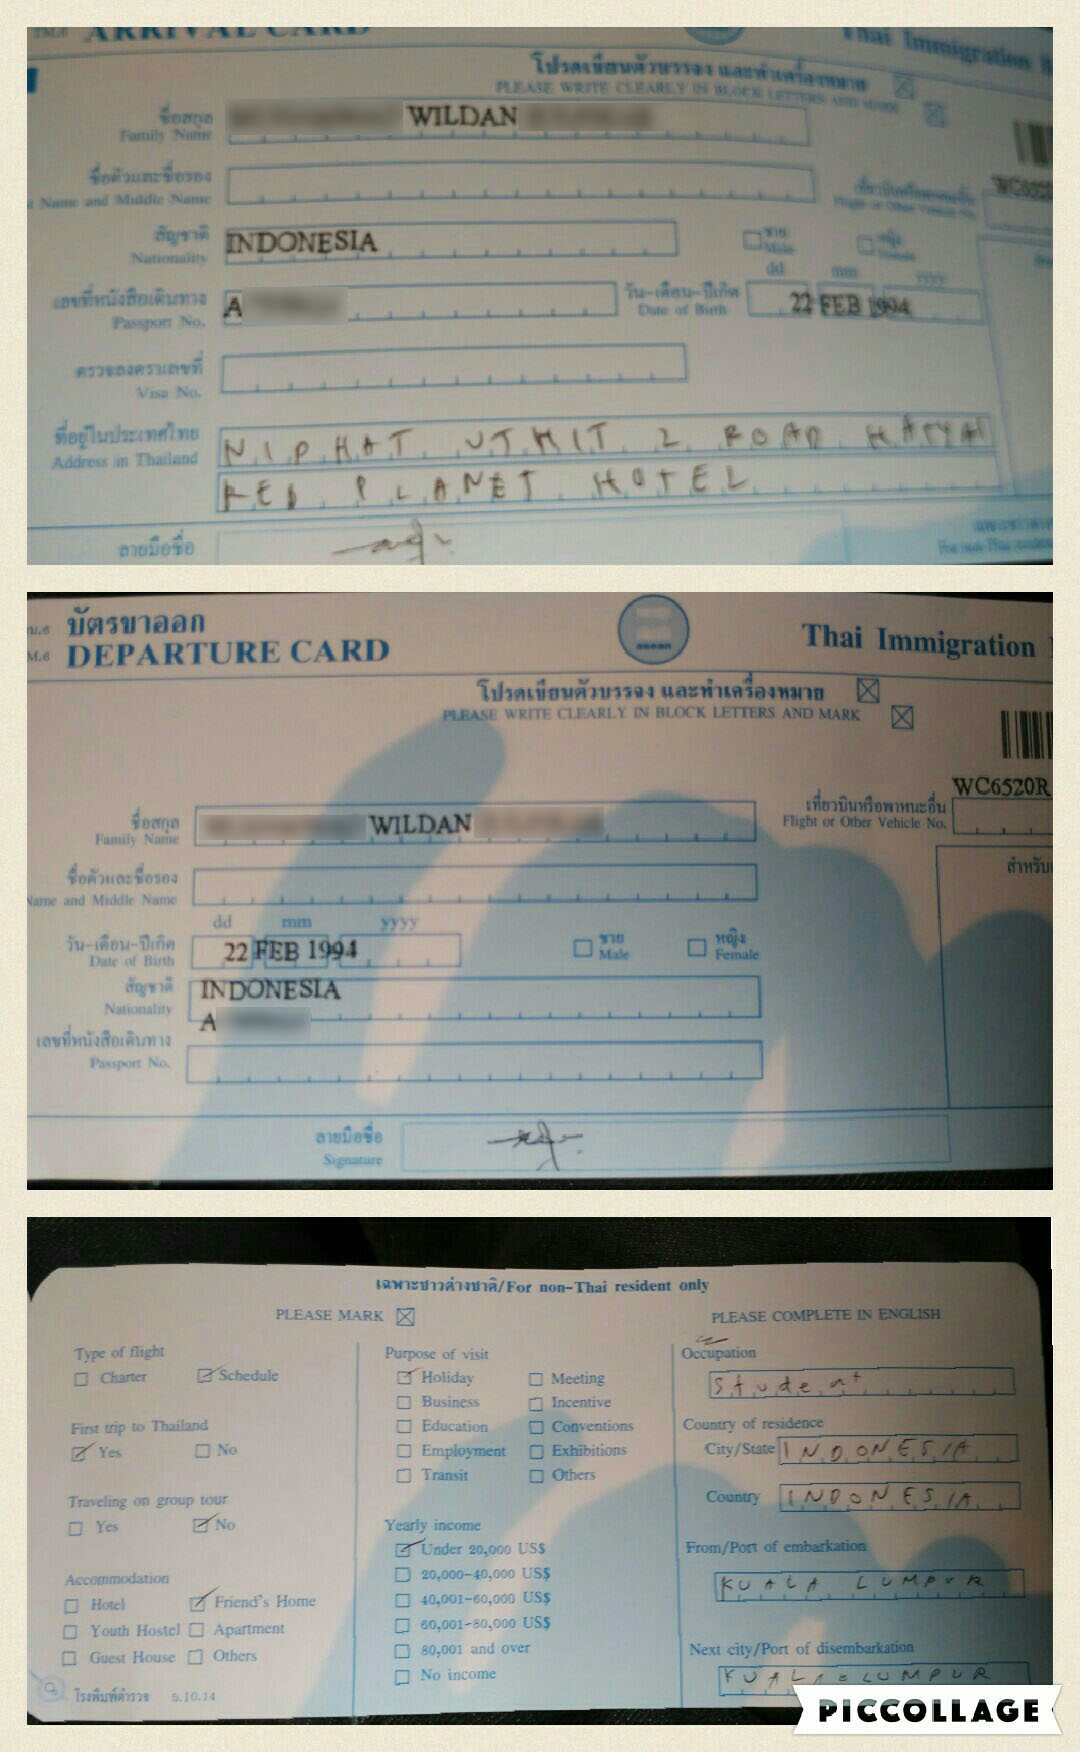 ARRIVAL CARD
Thai Immigration
โปรดเขียนตัวบรรจง และทำเครื่องหมาย
PLEASE WRITE CLEARLY IN BLOCK LETTERS AND MARK
ชื่อสกุล
Family Name
WILDAN
ชื่อตัวและชื่อรอง
Name and Middle Name
เที่ยวบินหรือพาหนะอื่น
Flight or Other Vehicle No.
สัญชาติ
Nationality
INDONESIA
ชาย
Male
หญิง
Female
เลขที่หนังสือเดินทาง
Passport No.
A
วัน-เดือน-ปีเกิด
Date of Birth
dd mm yyyy
22 FEB 1994
ตรวจลงตราเลขที่
Visa No.
ที่อยู่ในประเทศไทย
Address in Thailand
NIPHAT UTHIT 2 ROAD HATYAI
RED PLANET HOTEL
ลายมือชื่อ
บัตรขาออก
DEPARTURE CARD
Thai Immigration
โปรดเขียนตัวบรรจง และทำเครื่องหมาย
PLEASE WRITE CLEARLY IN BLOCK LETTERS AND MARK
WC6520R
ชื่อสกุล
Family Name
WILDAN
เที่ยวบินหรือพาหนะอื่น
Flight or Other Vehicle No.
ชื่อตัวและชื่อรอง
Name and Middle Name
dd mm yyyy
วัน-เดือน-ปีเกิด
Date of Birth
22 FEB 1994
ชาย
Male
หญิง
Female
สัญชาติ
Nationality
INDONESIA
A
เลขที่หนังสือเดินทาง
Passport No.
ลายมือชื่อ
Signature
เฉพาะชาวต่างชาติ/For non-Thai resident only
PLEASE MARK
PLEASE COMPLETE IN ENGLISH
Type of flight
Charter Schedule
First trip to Thailand
Yes No
Traveling on group tour
Yes No
Accommodation
Hotel Friend's Home
Youth Hostel Apartment
Guest House Others
โรงพิมพ์ตำรวจ 5.10.14
Purpose of visit
Holiday Meeting
Business Incentive
Education Conventions
Employment Exhibitions
Transit Others
Yearly income
Under 20,000 US$
20,000-40,000 US$
40,001-60,000 US$
60,001-80,000 US$
80,001 and over
No income
Occupation
Student
Country of residence
City/State INDONESIA
Country INDONESIA
From/Port of embarkation
KUALA LUMPUR
Next city/Port of disembarkation
KUALA LUMPUR
PICCOLLAGE